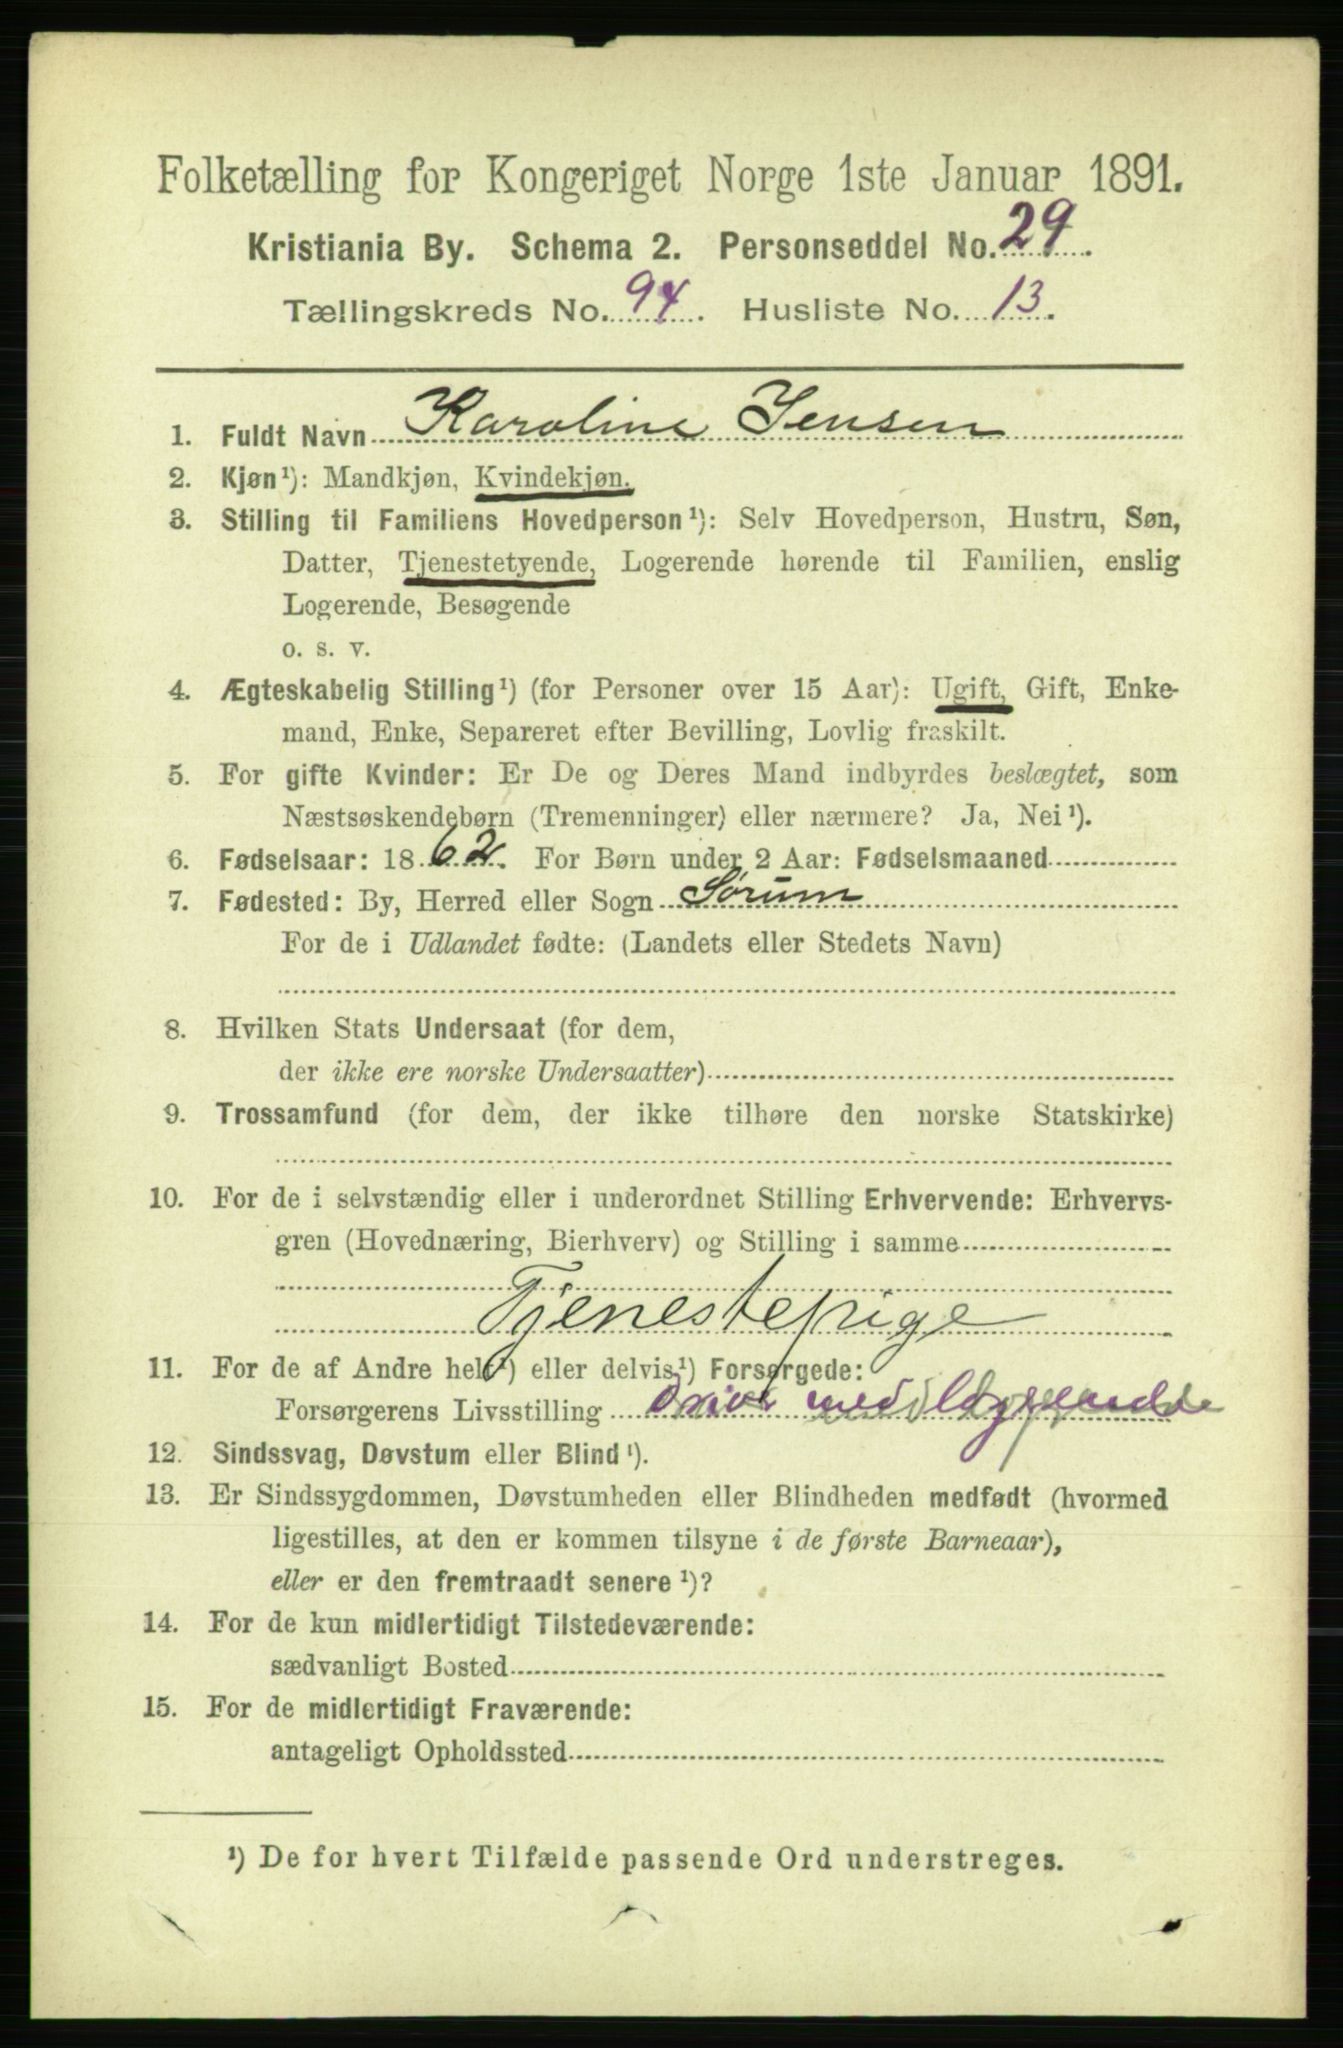 Folketælling for Kongeriget Norge 1ste Januar 1891.
Kristiania By. Schema 2. Personseddel No. 29.
Tællingskreds No. 94. Husliste No. 13.
1. Fuldt Navn Karoline Jensen
2. Kjøn¹): Mandkjøn, Kvindekjøn.
3. Stilling til Familiens Hovedperson¹): Selv Hovedperson, Hustru, Søn,
Datter, Tjenestetyende, Logerende hørende til Familien, enslig
Logerende, Besøgende
o. s. v.
4. Ægteskabelig Stilling¹) (for Personer over 15 Aar): Ugift, Gift, Enke-
mand, Enke, Separeret efter Bevilling, Lovlig fraskilt.
5. For gifte Kvinder: Er De og Deres Mand indbyrdes beslægtet, som
Næstsøskendebørn (Tremenninger) eller nærmere? Ja, Nei¹).
6. Fødselsaar: 1862. For Børn under 2 Aar: Fødselsmaaned
7. Fødested: By, Herred eller Sogn Sørum
For de i Udlandet fødte: (Landets eller Stedets Navn)
8. Hvilken Stats Undersaat (for dem,
der ikke ere norske Undersaatter)
9. Trossamfund (for dem, der ikke tilhøre den norske Statskirke)
10. For de i selvstændig eller i underordnet Stilling Erhvervende: Erhvervs-
gren (Hovednæring, Bierhverv) og Stilling i samme
Tjenestepige
11. For de af Andre helt¹) eller delvis¹) Forsørgede:
Forsørgerens Livsstilling
12. Sindssvag, Døvstum eller Blind¹).
13. Er Sindssygdommen, Døvstumheden eller Blindheden medfødt (hvormed
ligestilles, at den er kommen tilsyne i de første Barneaar),
eller er den fremtraadt senere¹)?
14. For de kun midlertidigt Tilstedeværende:
sædvanligt Bosted
15. For de midlertidigt Fraværende:
antageligt Opholdssted
¹) De for hvert Tilfælde passende Ord understreges.